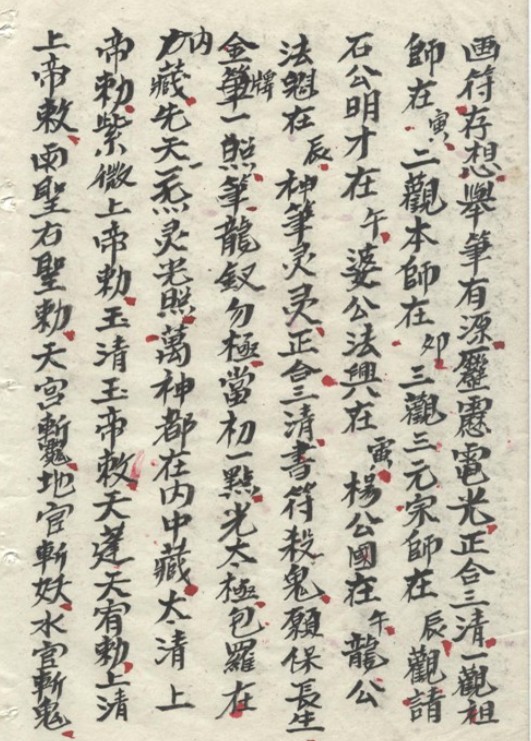 画符存想舉筆有源靂靂電光正合三清一觀祖
師在寅二觀本師在卯三觀三元宗師在辰觀請
石公明才在午婆公法興在寅楊公國在午龍公
法魁在辰神筆灵灵正合三清書符殺鬼願保長生
金筆牌一照筆龍釵勿極當初一點光太極包羅在
内方藏先天一炁灵光照萬神都在内中藏太清上
帝勅紫微上帝勅玉清玉帝敕天蓬天宥勅上清
上帝敕南聖右聖勅天官斬鬽地官斬妖水官斬鬼